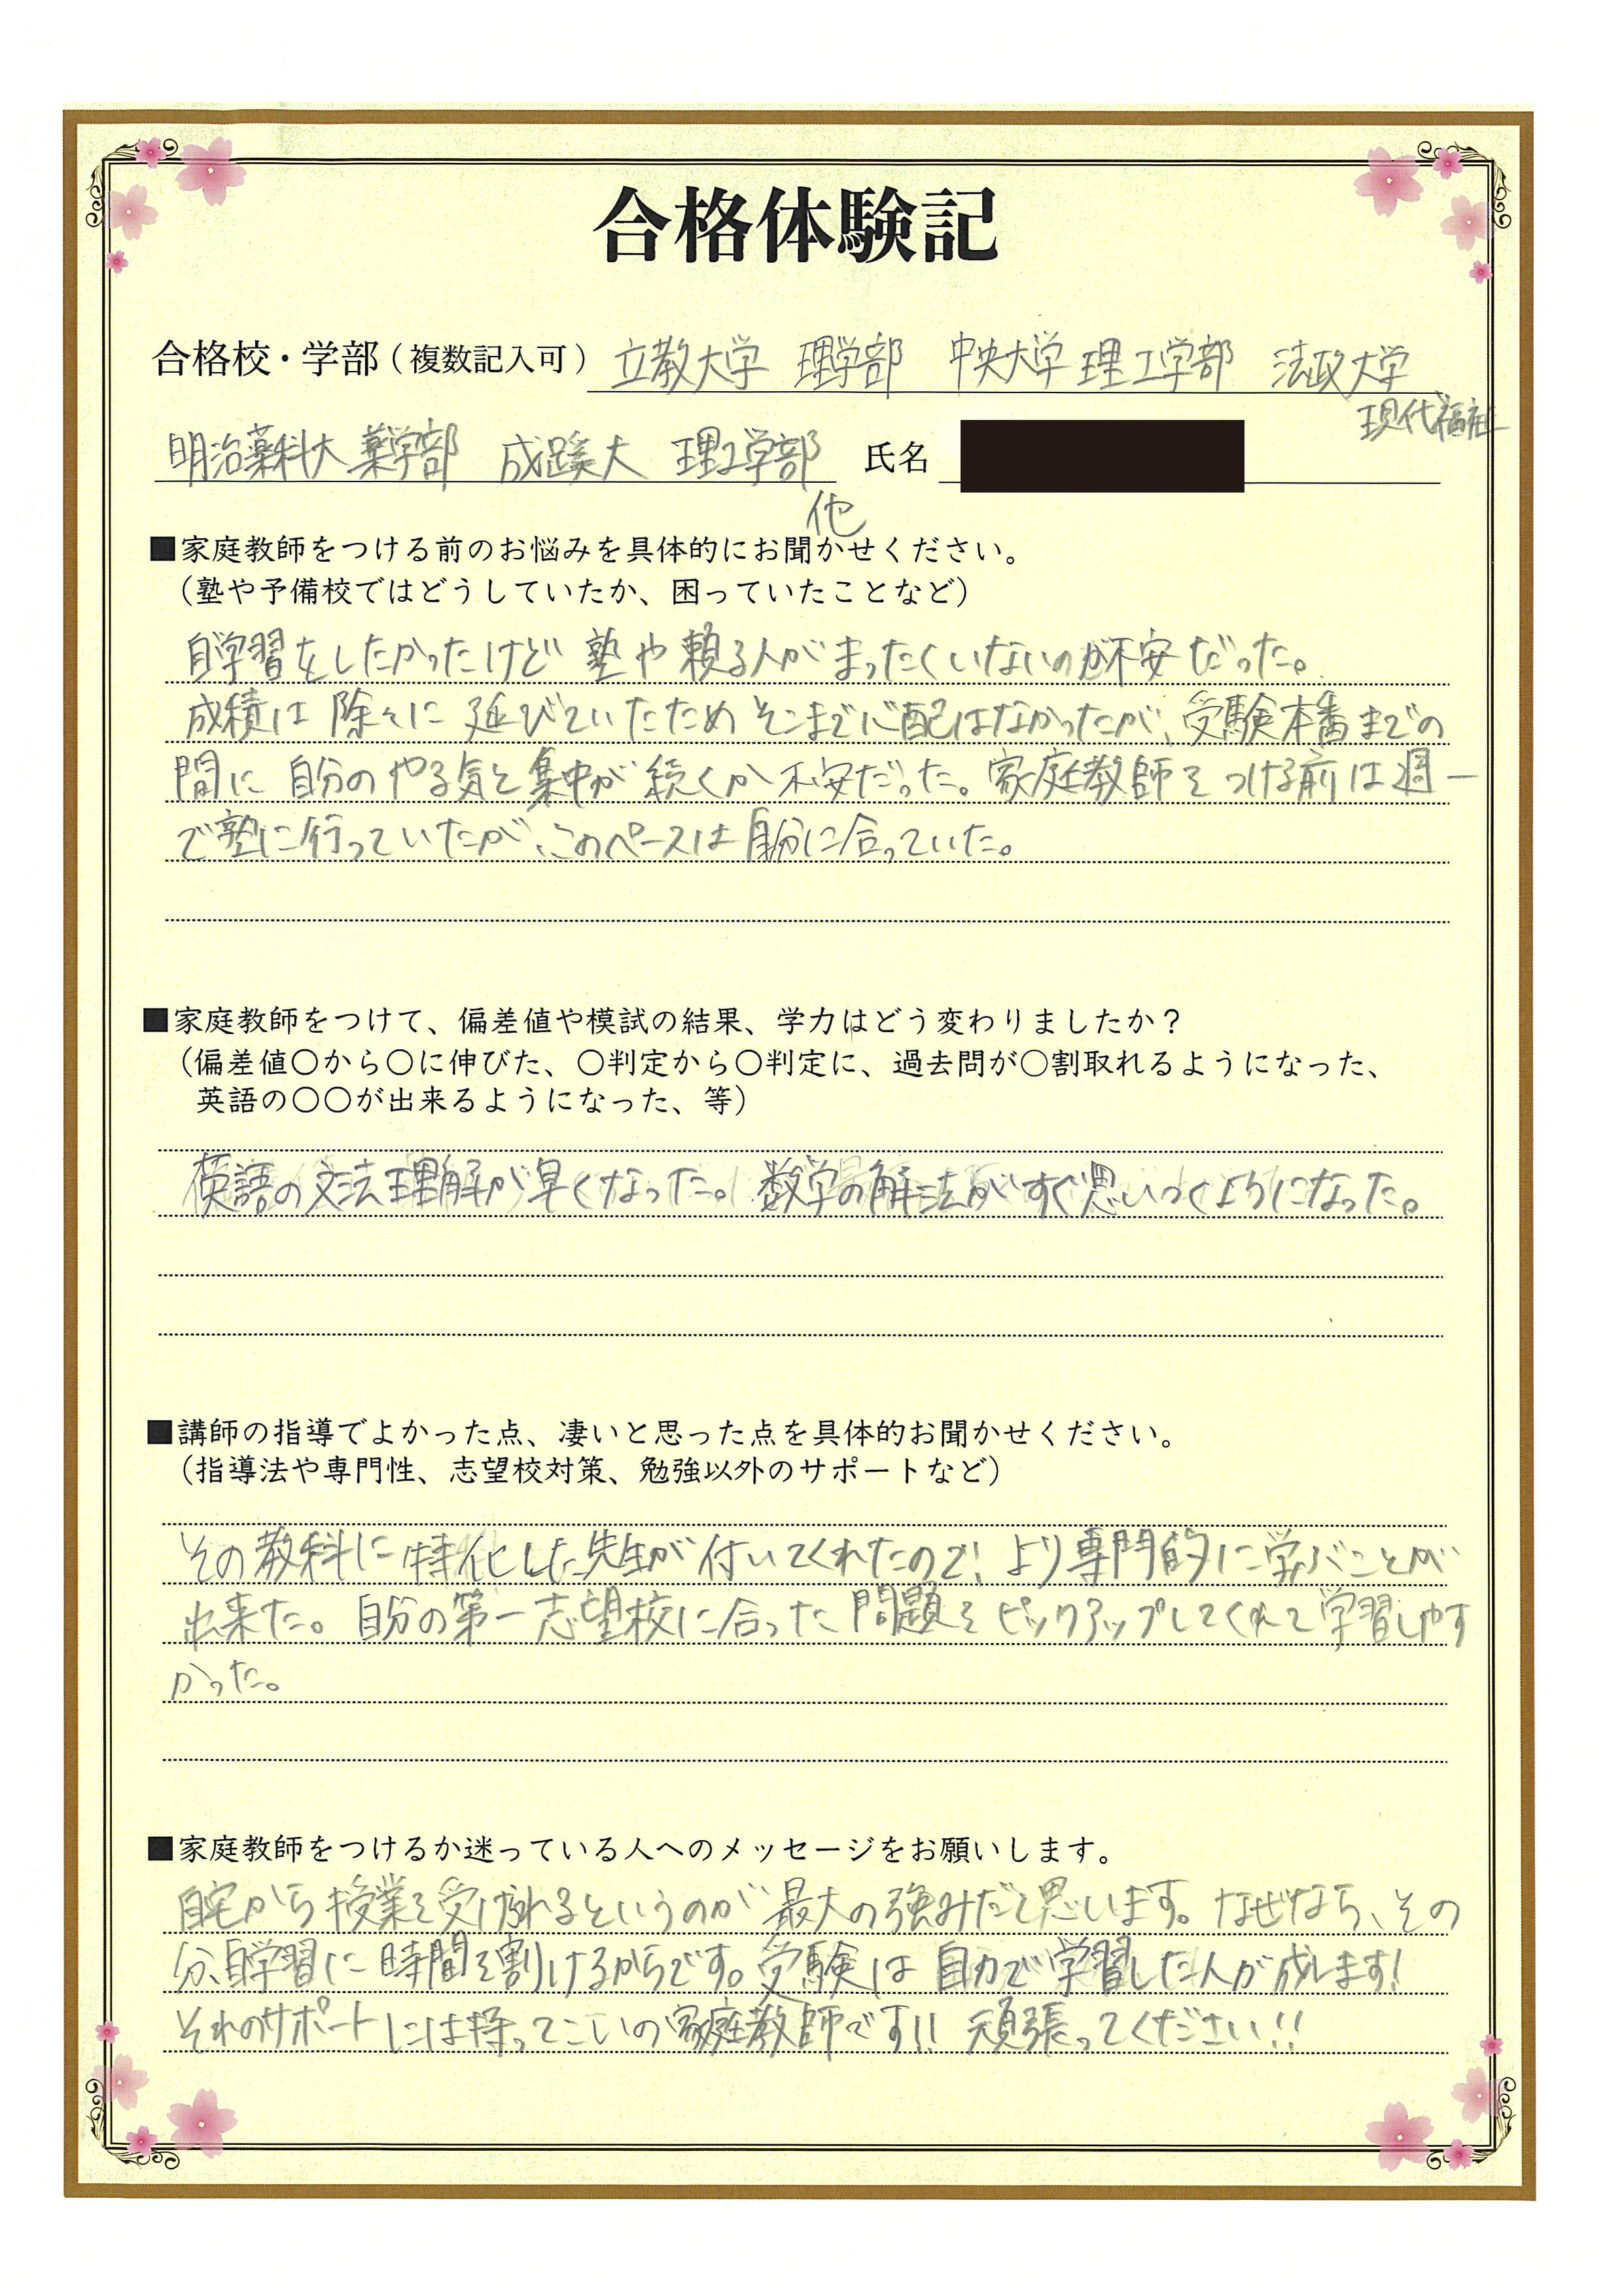 合格体験記
合格校・学部（複数記入可） 立教大学 理学部 中央大学 理工学部 法政大学
現代福祉
明治薬科大 薬学部 成蹊大 理工学部 氏名
他
■家庭教師をつける前のお悩みを具体的にお聞かせください。
（塾や予備校ではどうしていたか、困っていたことなど）
自学習をしたかったけど 塾や頼る人がまったくいないのが不安だった。
成績は除々に延びていたためそこまで心配はなかったが、受験本番までの
間に自分のやる気と集中が続くか不安だった。家庭教師をつける前は週一
で塾に行っていたが、このペースは自分に合っていた。
■家庭教師をつけて、偏差値や模試の結果、学力はどう変わりましたか？
（偏差値〇から〇に伸びた、〇判定から〇判定に、過去問が〇割取れるようになった、
英語の〇〇が出来るようになった、等）
英語の文法理解が早くなった。数学の解法がすぐ思いつくようになった。
■講師の指導でよかった点、凄いと思った点を具体的お聞かせください。
（指導法や専門性、志望校対策、勉強以外のサポートなど）
その教科に特化した先生が付いてくれたので、より専門的に学ぶことが
出来た。自分の第一志望校に合った問題をピックアップしてくれて学習しやす
かった。
■家庭教師をつけるか迷っている人へのメッセージをお願いします。
自宅から授業を受けられるというのが最大の強みだと思います。なぜなら、その
分、自学習に時間を割けるからです。受験は自力で学習した人が成します!
それのサポートには持ってこいの家庭教師です!! 頑張ってください!!